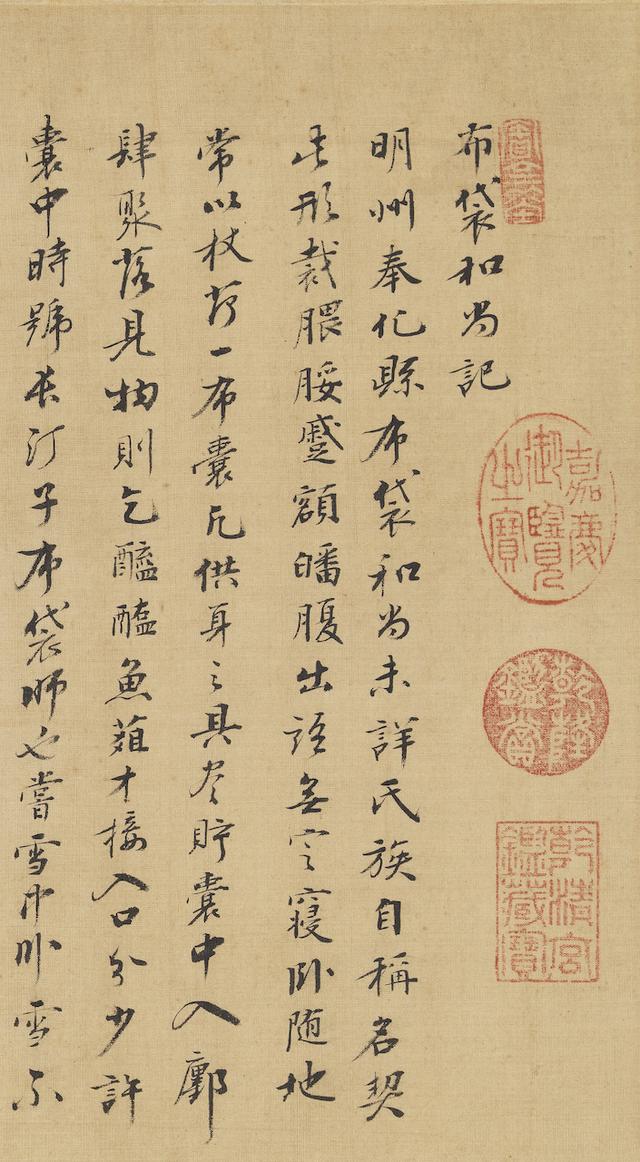 嘉慶御覽之寶
乾隆鑑賞
乾清宮鑑藏寶
布袋和尚記
明州奉化縣布袋和尚未詳氏族自稱名契
此形裁腲腇蹙額皤腹出語無定寢卧随地
常以杖荷一布囊凡供身之具尽貯囊中入鄽
肆聚落見物則乞醯醢魚葅才接入口分少許
囊中時號長汀子布袋師也嘗雪中卧雪不